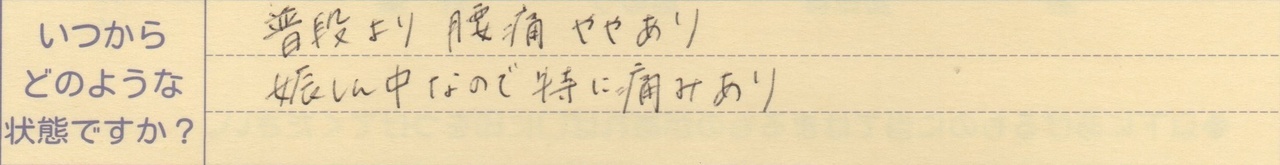 いつから
どのような
状態ですか?
普段より 腰痛 ややあり
娠しん中なので特に痛みあり